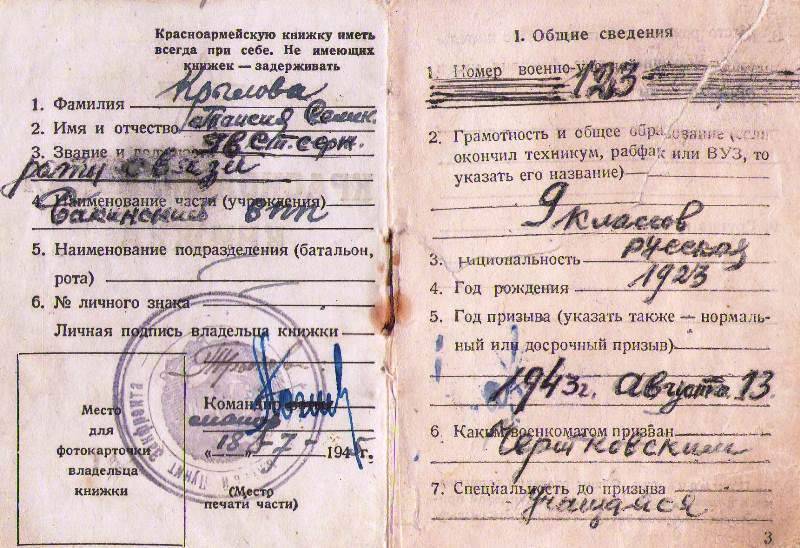 Красноармейскую книжку иметь
всегда при себе. Не имеющих
книжек — задерживать
1. Фамилия Крылова
2. Имя и отчество Таисия Семен.
3. Звание и ГВ ст. серж.
роты связи
4. Наименование части (учреждения)
Бакинский ВПП
5. Наименование подразделения (батальон,
рота)
6. № личного знака
Личная подпись владельца книжки
Командир
„18“ - 7 - 1945г.
(Место
печати части)
Место
для
фотокарточки
владельца
книжки
I. Общие сведения
1. Номер военно- 123
2. Грамотность и общее образование (если
окончил техникум, рабфак или ВУЗ, то
указать его название)
9 классов
3. Национальность русская
4. Год рождения 1923
5. Год призыва (указать также — нормаль-
ный или досрочный призыв)
1943г. августа 13.
6. Каким военкоматом призван
Чертковским
7. Специальность до призыва
учащаяся
3